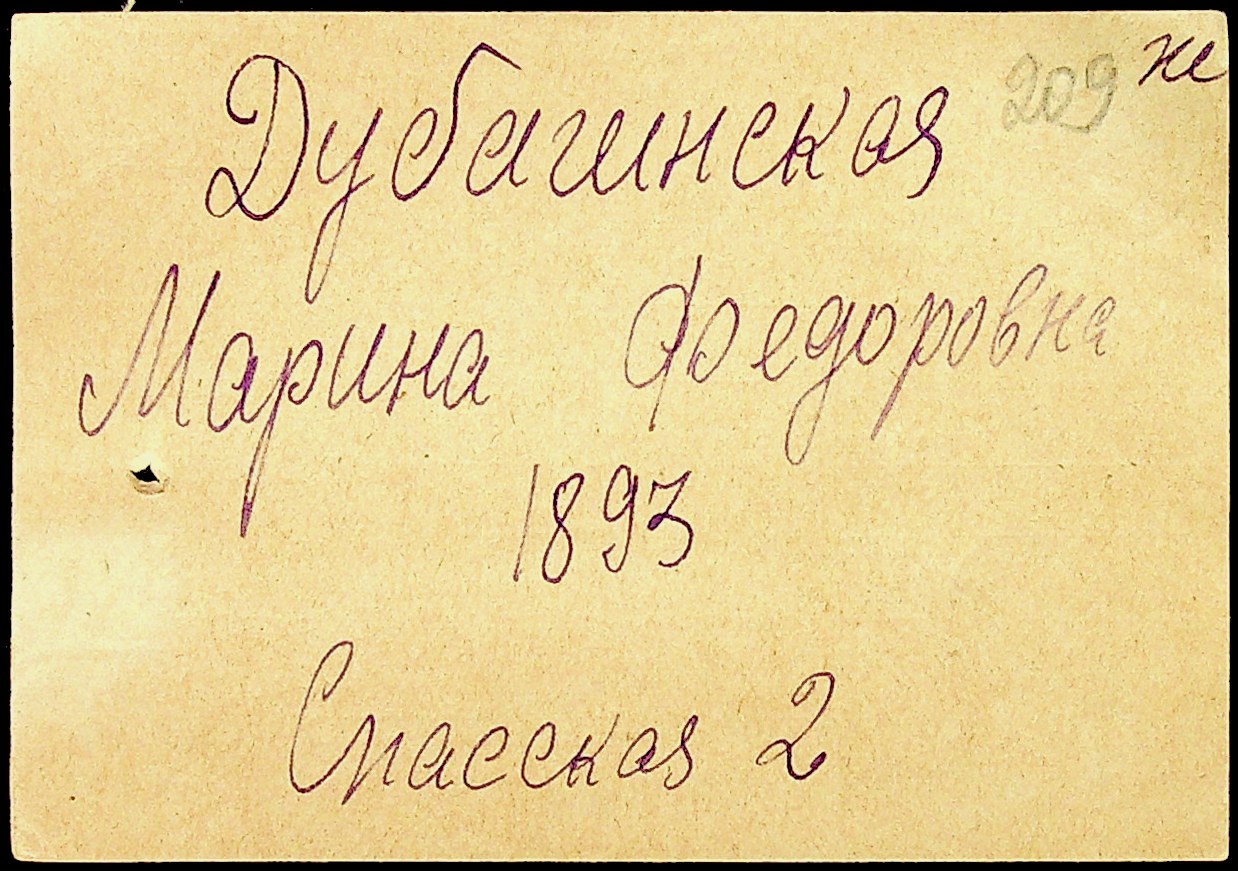 Дубагинская 209 не
Марина Федоровна
1893
Спасская 2